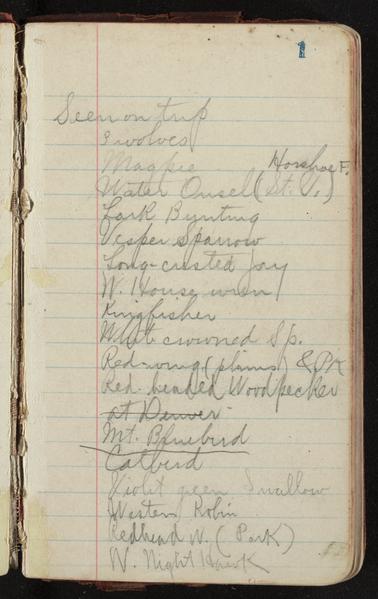 1
Seen on trip
3 wolves
Magpie Horshoe F.
Water Ousel (St. V.)
Lark Bynting
Vesper Sparrow
Long-crested Jay
W. House wren
Kingfisher
White crowned Sp.
Red-wing (plains) & PK
Red-headed Woodpecker
at Denver
Mt. Bluebird
Catbird
Violet green Swallow
Western Robin
Redhead W. (Park)
W. Night Hawk